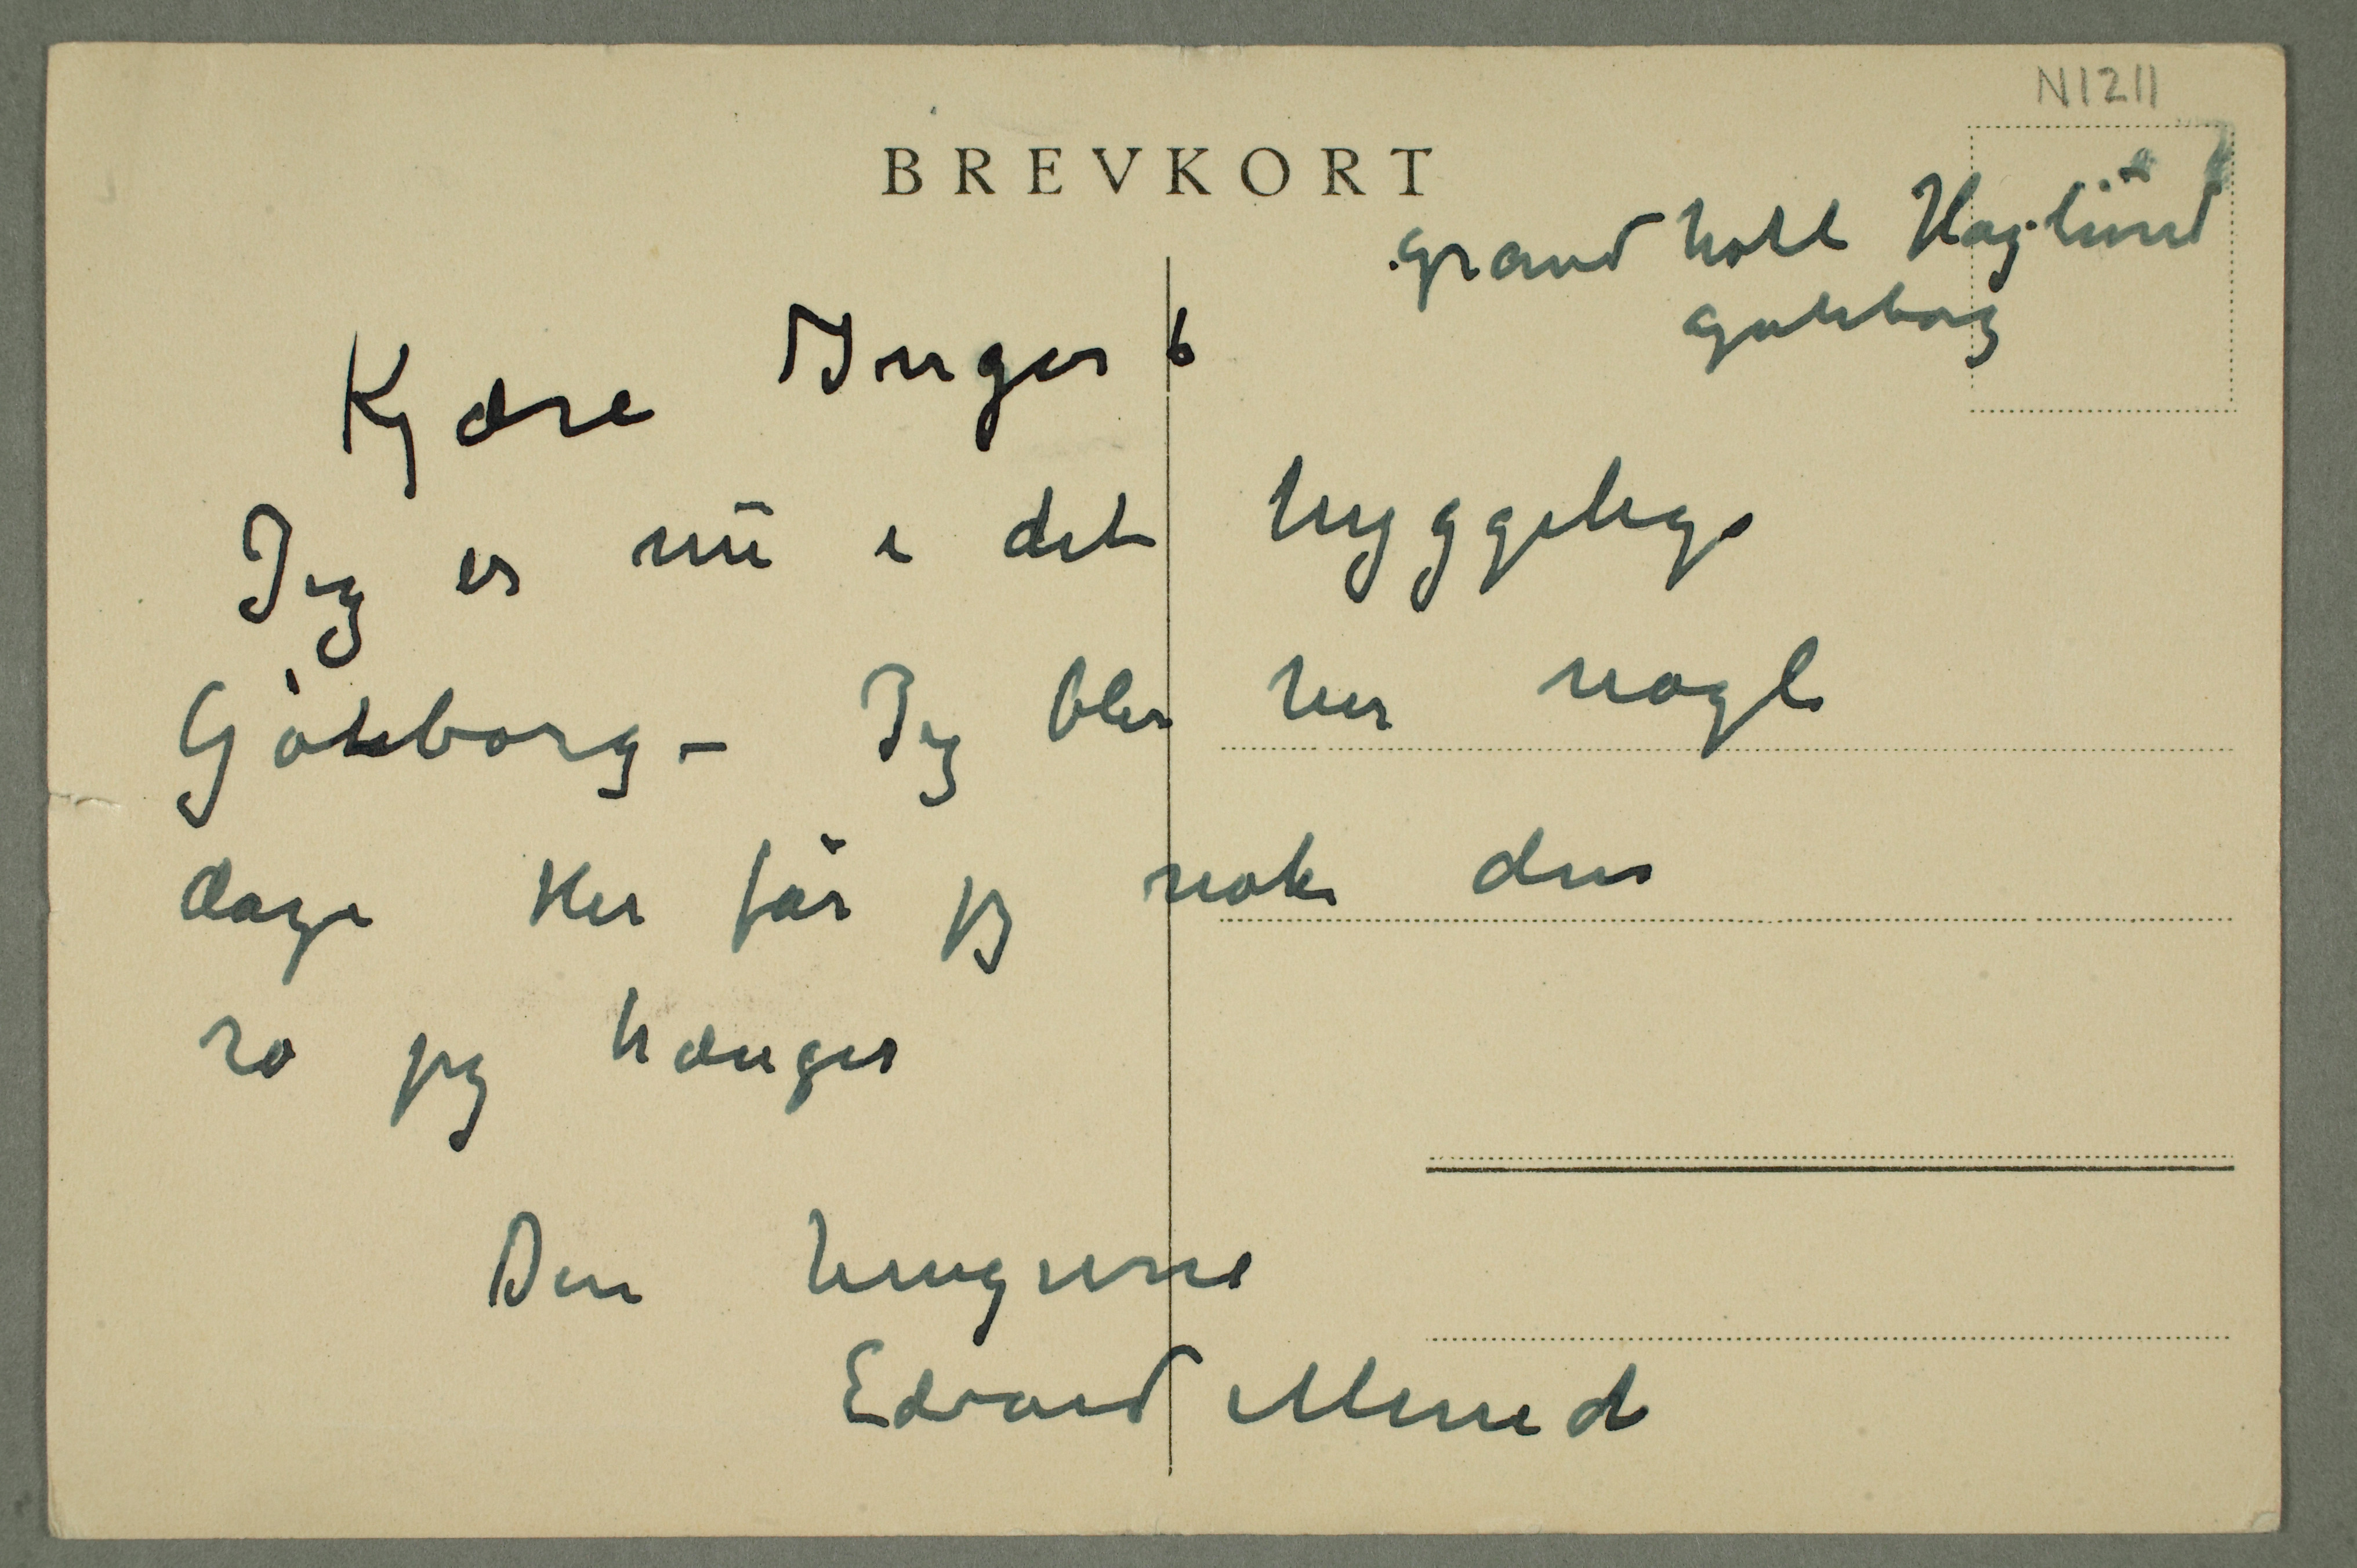 N1211
BREVKORT
grand hotel Haglund
Gøteborg
Kjære Inger
Jeg er nu i det hyggelige
Göteborg – Jeg blir her nogle
dage Her får jeg nok den
ro jeg trænger
Den hengivne
Edvard Munch